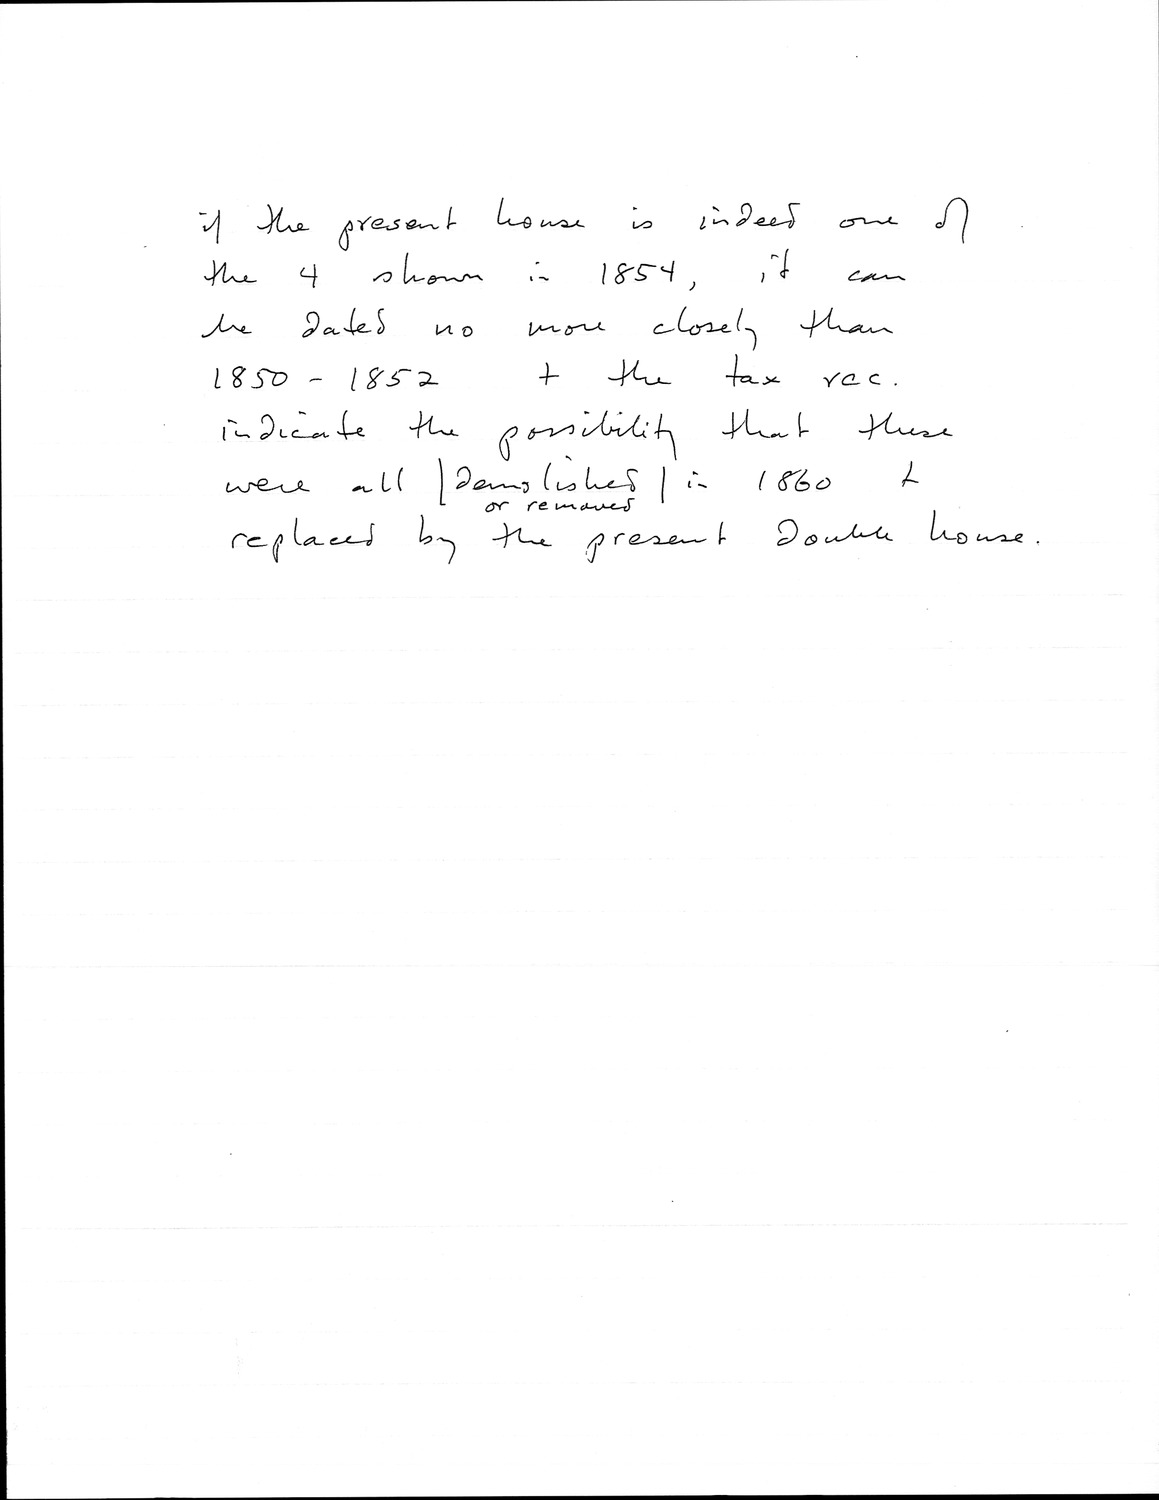 if the present house is indeed one of
the 4 shown in 1854, it can
be dated no more closely than
1850 - 1852 + the tax rec.
indicate the possibility that these
were all |demolished| in 1860 +
or removed
replaced by the present double house.